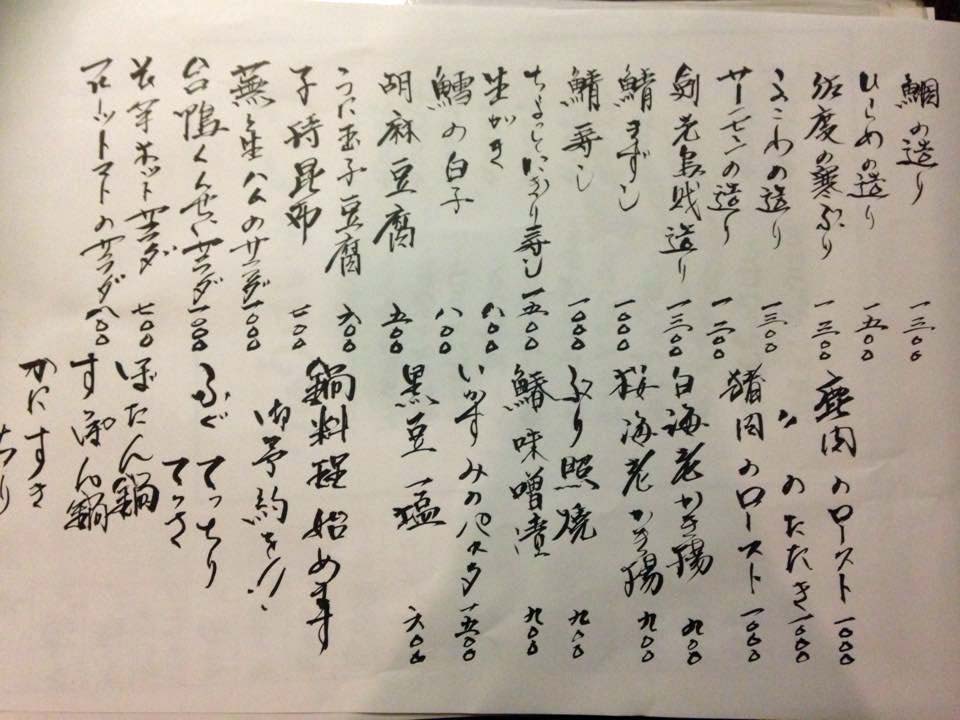 鯛の造り 一三〇〇
ひらめの造り 一五〇〇
佐度の寒ぶり 一三〇〇
よこわの造り 一三〇〇
サーモンの造り 一二〇〇
剣先烏賊造り 一三〇〇
鯖きずし 一〇〇〇
鯖寿し 一〇〇〇
ちょっとにぎり寿し 一五〇〇
生がき 八〇〇
鱈の白子 八〇〇
胡麻豆腐 五〇〇
うに玉子豆腐 六〇〇
子持昆布 七〇〇
蕪と生ハムのサラダ 一〇〇〇
合鴨くんせいサラダ 一〇〇〇
ホットサラダ 七〇〇
フルーツトマトのサラダ 八〇〇
鹿肉のロースト 一〇〇〇
〃のたたき 一〇〇〇
猪肉のロースト 一〇〇〇
白海老かき揚 九〇〇
桜海老かき揚 九〇〇
ぶり照焼 九〇〇
鰆味噌漬 九〇〇
いかすみのパスタ 一五〇〇
黒豆一塩 六〇〇
鍋料理始めます
御予約を!!
ふぐ てっちり
てっさ
ぼたん鍋
すっぽん鍋
かにすき
ちり